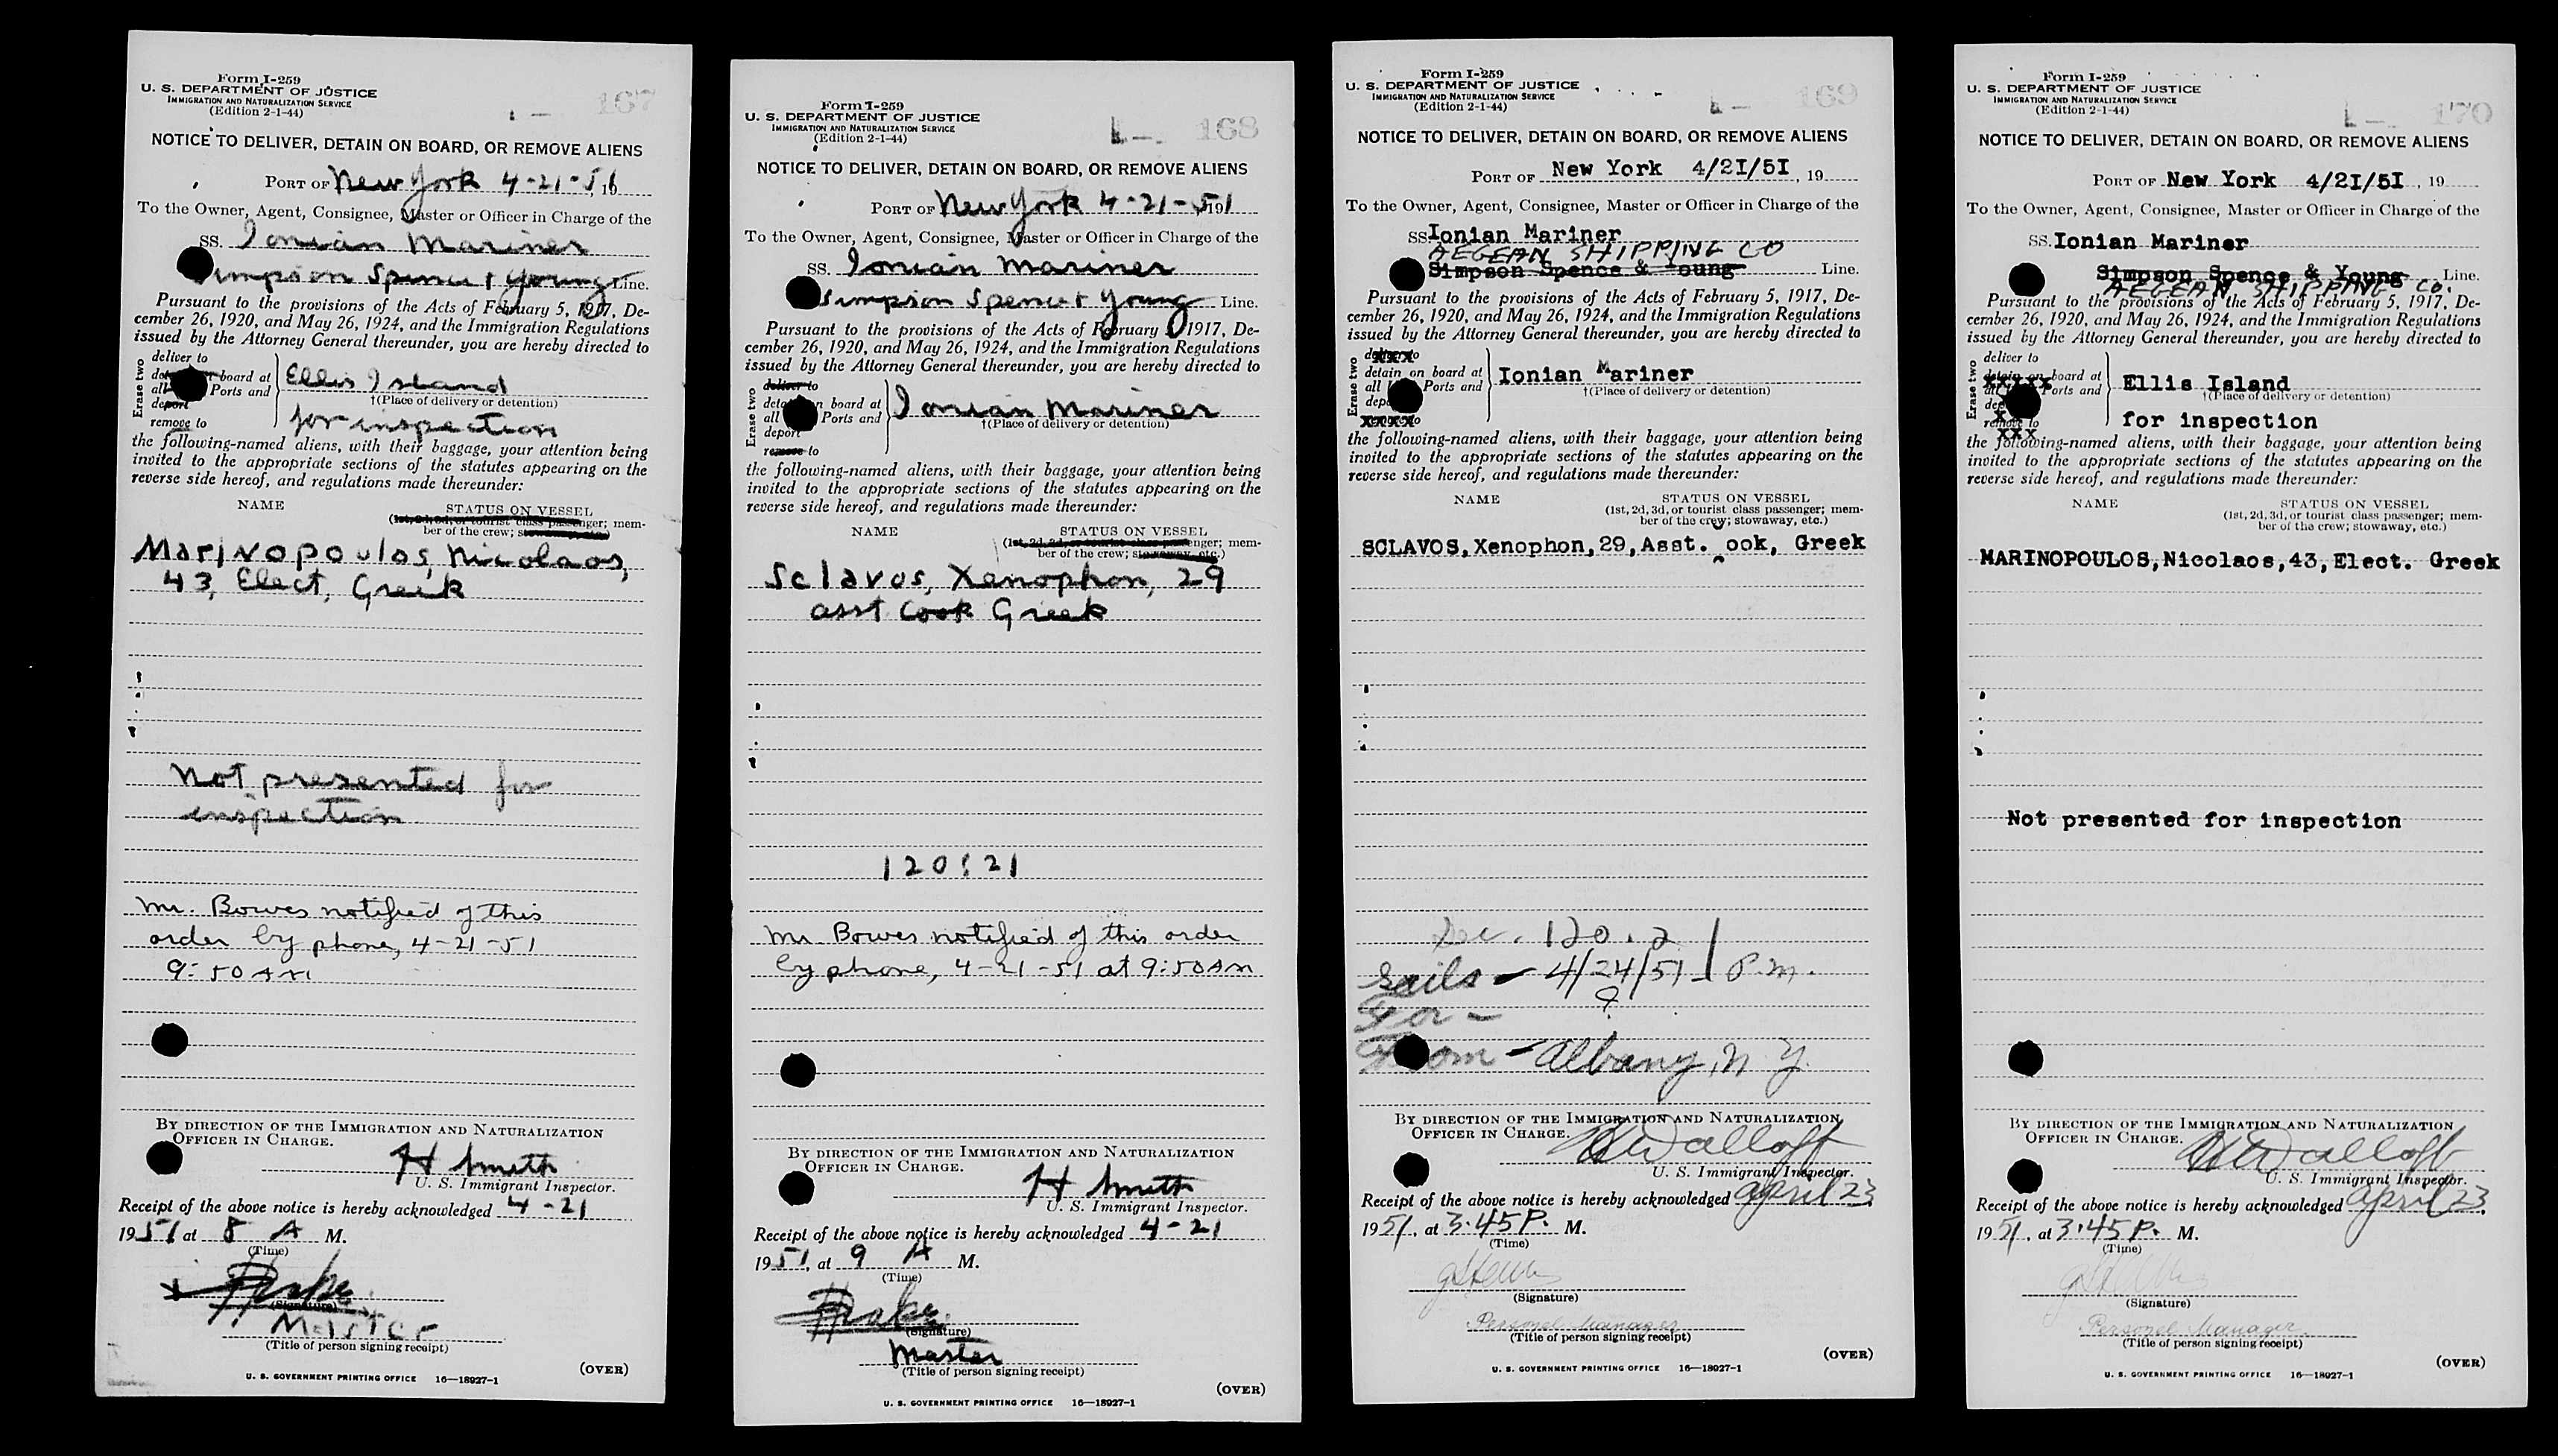 Form I-259
U. S. DEPARTMENT OF JUSTICE
IMMIGRATION AND NATURALIZATION SERVICE
(Edition 2-1-44)
167
NOTICE TO DELIVER, DETAIN ON BOARD, OR REMOVE ALIENS
PORT OF New York 4-21-51, 19
To the Owner, Agent, Consignee, Master or Officer in Charge of the
SS. Ionian Mariner
Simpson Spence & Young Line.
Pursuant to the provisions of the Acts of February 5, 1917, De-
cember 26, 1920, and May 26, 1924, and the Immigration Regulations
issued by the Attorney General thereunder, you are hereby directed to
Erase two
deliver to
board at
all Ports and
deport
remove to
Ellis Island
†(Place of delivery or detention)
for inspection
the following-named aliens, with their baggage, your attention being
invited to the appropriate sections of the statutes appearing on the
reverse side hereof, and regulations made thereunder:
NAME STATUS ON VESSEL
(1st, 2d, 3d, or tourist class passenger; mem-
ber of the crew; stowaway, etc.)
Marinopoulos, Nicolaos,
43, Elect, Greek
Not presented for
inspection
Mr. Bowes notified of this
order by phone, 4-21-51
9:50 AM
BY DIRECTION OF THE IMMIGRATION AND NATURALIZATION
OFFICER IN CHARGE.
H Smith
U. S. Immigrant Inspector.
Receipt of the above notice is hereby acknowledged 4-21
1951 at 8 A M.
(Time)
(Signature)
Master
(Title of person signing receipt)
(OVER)
U. S. GOVERNMENT PRINTING OFFICE 16—18927-1
Form I-259
U. S. DEPARTMENT OF JUSTICE
IMMIGRATION AND NATURALIZATION SERVICE
(Edition 2-1-44)
168
NOTICE TO DELIVER, DETAIN ON BOARD, OR REMOVE ALIENS
PORT OF New York 4-21-51
To the Owner, Agent, Consignee, Master or Officer in Charge of the
SS. Ionian Mariner
Simpson Spence & Young Line.
Pursuant to the provisions of the Acts of February 5, 1917, De-
cember 26, 1920, and May 26, 1924, and the Immigration Regulations
issued by the Attorney General thereunder, you are hereby directed to
Erase two
deliver to
detain on board at
all Ports and
deport
remove to
Ionian Mariner
†(Place of delivery or detention)
the following-named aliens, with their baggage, your attention being
invited to the appropriate sections of the statutes appearing on the
reverse side hereof, and regulations made thereunder:
NAME STATUS ON VESSEL
(1st, 2d, 3d, or tourist class passenger; mem-
ber of the crew; stowaway, etc.)
Sclavos, Xenophon, 29
asst Cook Greek
120:21
Mr. Bowes notified of this order
by phone, 4-21-51 at 9:50 AM
BY DIRECTION OF THE IMMIGRATION AND NATURALIZATION
OFFICER IN CHARGE.
H Smith
U. S. Immigrant Inspector.
Receipt of the above notice is hereby acknowledged 4-21
1951, at 9 A M.
(Time)
(Signature)
Master
(Title of person signing receipt)
(OVER)
U. S. GOVERNMENT PRINTING OFFICE 16—18927-1
Form I-259
U. S. DEPARTMENT OF JUSTICE
IMMIGRATION AND NATURALIZATION SERVICE
(Edition 2-1-44)
169
NOTICE TO DELIVER, DETAIN ON BOARD, OR REMOVE ALIENS
PORT OF New York 4/2I/5I, 19
To the Owner, Agent, Consignee, Master or Officer in Charge of the
SS. Ionian Mariner
AEGEAN SHIPPING CO
Simpson Spence & Young Line.
Pursuant to the provisions of the Acts of February 5, 1917, De-
cember 26, 1920, and May 26, 1924, and the Immigration Regulations
issued by the Attorney General thereunder, you are hereby directed to
Erase two
deliver to
detain on board at
all Ports and
deport
remove to
Ionian Mariner
†(Place of delivery or detention)
the following-named aliens, with their baggage, your attention being
invited to the appropriate sections of the statutes appearing on the
reverse side hereof, and regulations made thereunder:
NAME STATUS ON VESSEL
(1st, 2d, 3d, or tourist class passenger; mem-
ber of the crew; stowaway, etc.)
SCLAVOS, Xenophon, 29, Asst. Cook, Greek
Sec. 120.21
Sails - 4/24/51 P.M.
For - ?
From - Albany, N. Y.
BY DIRECTION OF THE IMMIGRATION AND NATURALIZATION
OFFICER IN CHARGE.
U. S. Immigrant Inspector.
Receipt of the above notice is hereby acknowledged April 23
1951, at 3:45 P. M.
(Time)
(Signature)
Personel Manager
(Title of person signing receipt)
(OVER)
U. S. GOVERNMENT PRINTING OFFICE 16—18927-1
Form I-259
U. S. DEPARTMENT OF JUSTICE
IMMIGRATION AND NATURALIZATION SERVICE
(Edition 2-1-44)
170
NOTICE TO DELIVER, DETAIN ON BOARD, OR REMOVE ALIENS
PORT OF New York 4/2I/5I, 19
To the Owner, Agent, Consignee, Master or Officer in Charge of the
SS. Ionian Mariner
Simpson Spence & Young Line.
AEGEAN SHIPPING CO.
Pursuant to the provisions of the Acts of February 5, 1917, De-
cember 26, 1920, and May 26, 1924, and the Immigration Regulations
issued by the Attorney General thereunder, you are hereby directed to
Erase two
deliver to
detain on board at
all Ports and
remove to
Ellis Island
†(Place of delivery or detention)
for inspection
the following-named aliens, with their baggage, your attention being
invited to the appropriate sections of the statutes appearing on the
reverse side hereof, and regulations made thereunder:
NAME STATUS ON VESSEL
(1st, 2d, 3d, or tourist class passenger; mem-
ber of the crew; stowaway, etc.)
MARINOPOULOS, Nicolaos, 43, Elect. Greek
Not presented for inspection
BY DIRECTION OF THE IMMIGRATION AND NATURALIZATION
OFFICER IN CHARGE.
U. S. Immigrant Inspector.
Receipt of the above notice is hereby acknowledged April 23
1951, at 3:45 P. M.
(Time)
(Signature)
Personel Manager
(Title of person signing receipt)
(OVER)
U. S. GOVERNMENT PRINTING OFFICE 16—18927-1